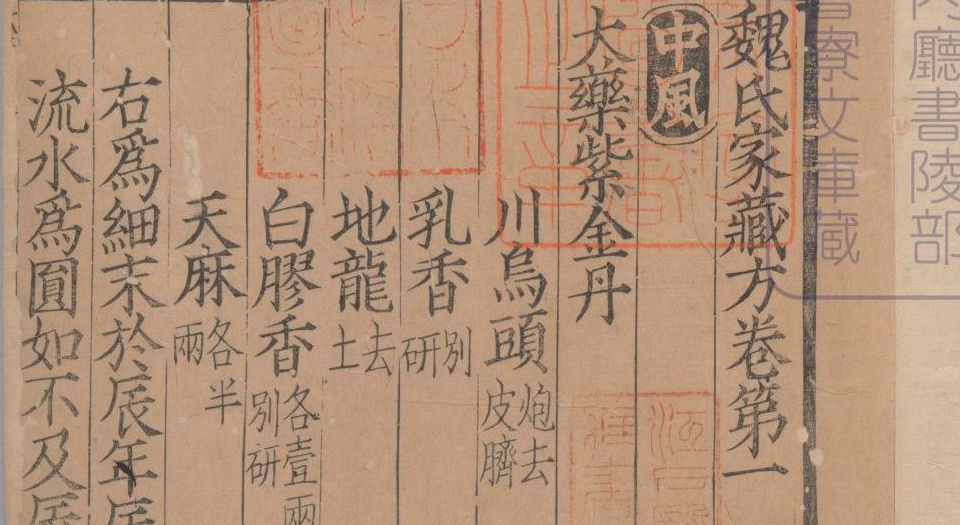 魏氏家藏方卷第一
中風
大藥紫金丹
川烏頭炮去皮臍
乳香別研
地龍去土
白膠香各壹兩別研
天麻各半兩
右爲細末於辰年辰
流水爲圓如不及辰
內廳書陵部
寮文庫蔵